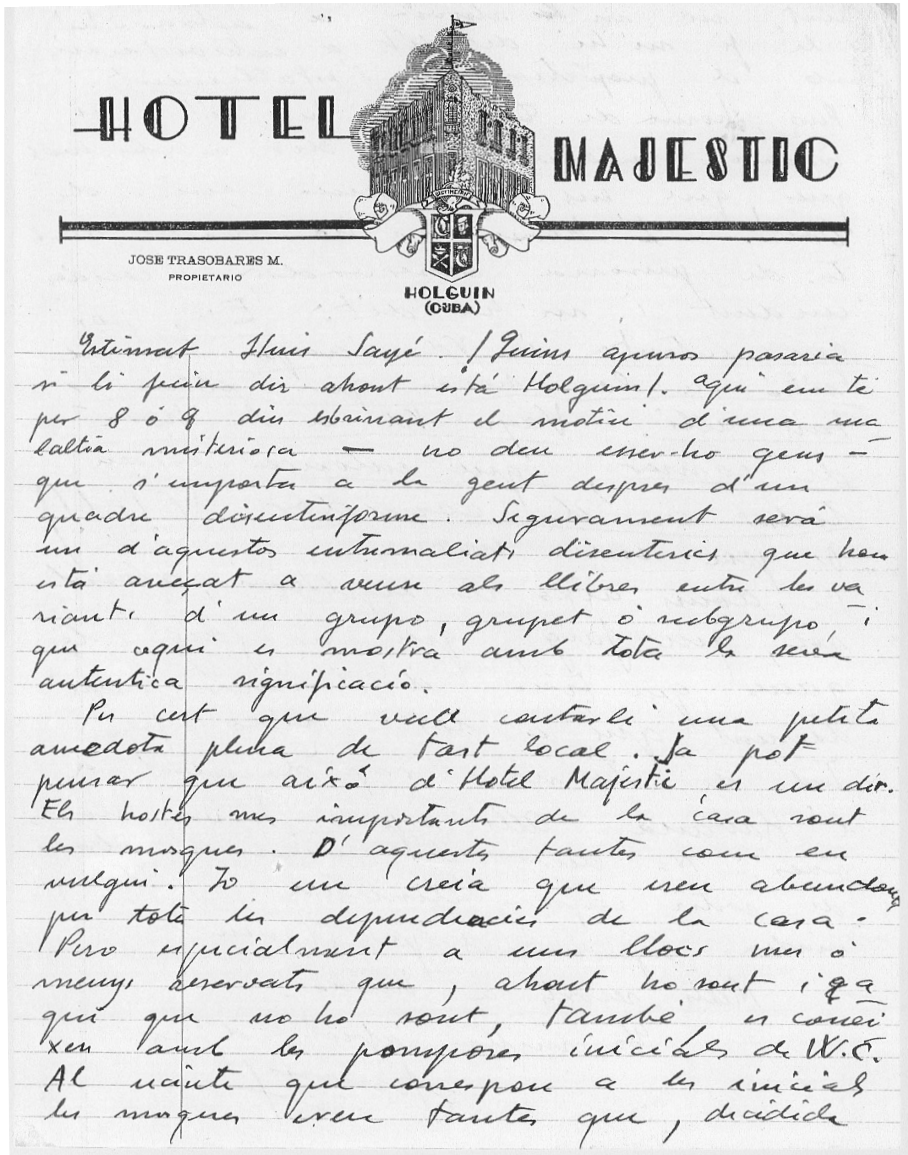 HOTEL MAJESTIC
JOSE TRASOBARES M.
PROPIETARIO
HOLGUIN
(CUBA)
Estimat Lluis Sayé. ¡Quins apuros pasaria
si li fein dir ahont está Holguin!. aqui em te
per 8 ó 9 dies esbrinant el motiu d'una ma
laltia misteriosa — no deu esser-ho gens —
que s'emporta a la gent despres d'un
quadre disenteriforme. Segurament será
un d'aquestos entremaliats disenterics que hom
está avesat a veure als llibres entre les va
riants d'un grupo, grupet ó subgrupo, i
que aqui es mostra amb tota la seva
autentica significació.
Per cert que vull contarli una petita
anecdota plena de tast local. Ja pot
pensar que aixó d'Hotel Majestic es un dir.
Els hostes mes importants de la casa sont
les mosques. D'aquestes tantes com en
vulgui. Jo em creia que eren abundants
per tota les dependecies de la casa.
Pero especialment a uns llocs mes ó
menys reservats que, ahont ho sont i ça
qui que no ho sont, també es conei
xen amb les pomposes inicials de W.C.
Al que correspon a les inicials
les mosques eren tantes que, decidida